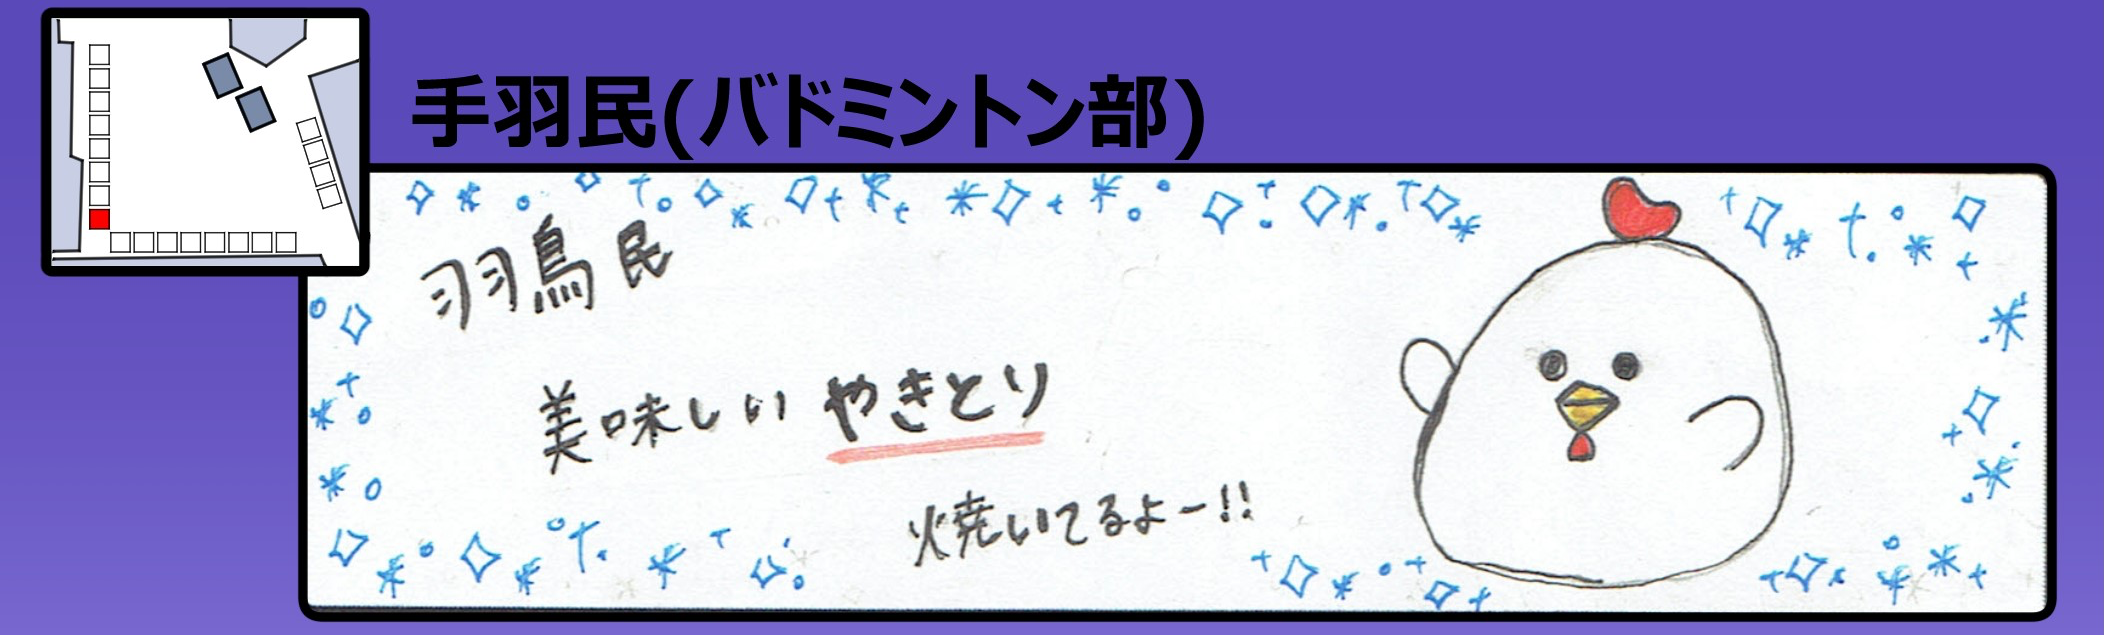 手羽民(バドミントン部)
羽鳥民
美味しいやきとり
焼いてるよー!!